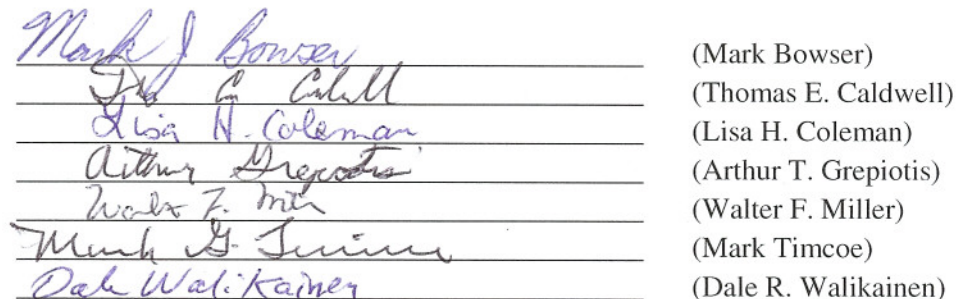 Mark J Bowser (Mark Bowser)
(Thomas E. Caldwell)
Lisa H. Coleman (Lisa H. Coleman)
Arthur Grepiotis (Arthur T. Grepiotis)
Walter F. (Walter F. Miller)
Mark G. (Mark Timcoe)
Dale Walikainen (Dale R. Walikainen)